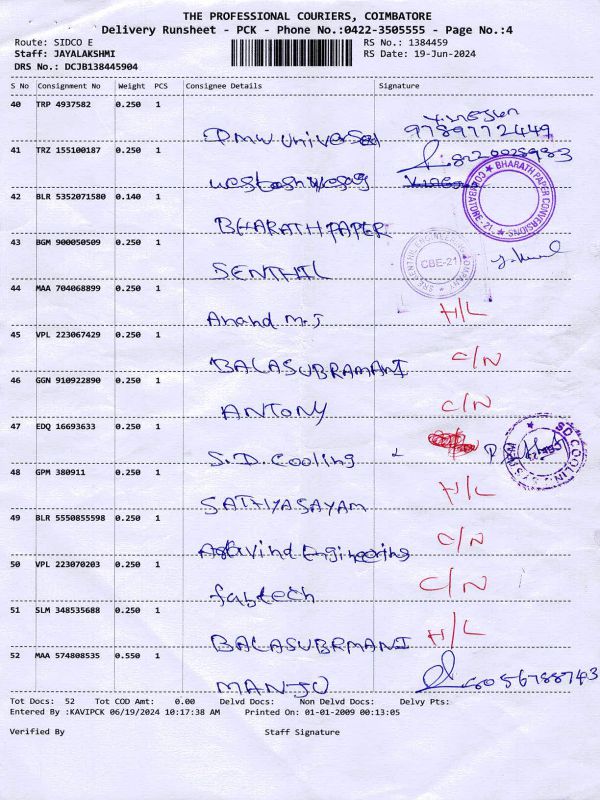 THE PROFESSIONAL COURIERS, COIMBATORE
Delivery Runsheet - PCK - Phone No.:0422-3505555 - Page No.:4
Route: SIDCO E RS No.: 1384459
Staff: JAYALAKSHMI RS Date: 19-Jun-2024
DRS No.: DCJB138445904
S No Consignment No Weight PCS Consignee Details Signature
40 TRP 4937582 0.250 1
9789772449
41 TRZ 155100187 0.250 1
BHARATH PAPER CONVERSIONS COIMBATORE-21.
42 BLR 5352071580 0.140 1
BHARATH PAPER
43 BGM 900050509 0.250 1
SENTHIL CBE-21
44 MAA 704068899 0.250 1
Anand M.J H/L
45 VPL 223067429 0.250 1
BALASUBRAMANI C/N
46 GGN 910922890 0.250 1
ANTONY C/N
47 EDQ 16693633 0.250 1
S.D. Cooling
48 GPM 380911 0.250 1
SATHYASAYAM H/L
49 BLR 5550855598 0.250 1
Aravind Engineering C/N
50 VPL 223070203 0.250 1
fabtech C/N
51 SLM 348535688 0.250 1
BALASUBRMANI H/L
52 MAA 574808535 0.550 1
MANJU 8056788743
Tot Docs: 52 Tot COD Amt: 0.00 Delvd Docs: Non Delvd Docs: Delvy Pts:
Entered By :KAVIPCK 06/19/2024 10:17:38 AM Printed On: 01-01-2009 00:13:05
Verified By Staff Signature